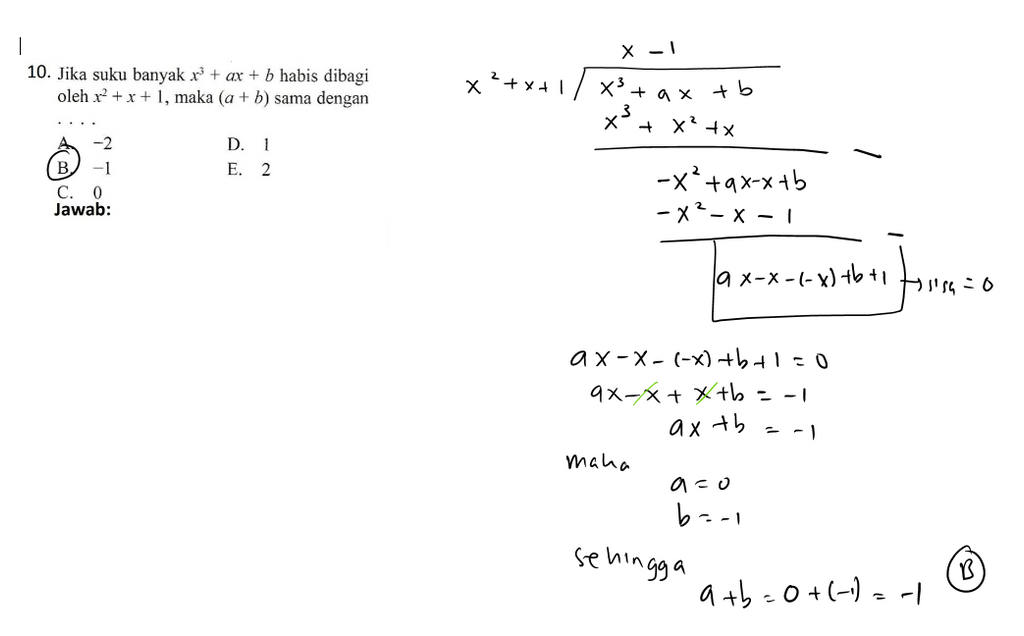 10. Jika suku banyak x³ + ax + b habis dibagi
oleh x² + x + 1, maka (a + b) sama dengan
. . . .
A. −2
B. −1
C. 0
D. 1
E. 2
Jawab:
x − 1
x² + x + 1 / x³ + ax + b
x³ + x² + x
−
−x² + ax − x + b
−x² − x − 1
−
ax − x − (−x) + b + 1 → = 0
ax − x − (−x) + b + 1 = 0
ax − x + x + b = −1
ax + b = −1
maka
a = 0
b = −1
sehingga
a + b = 0 + (−1) = −1
B